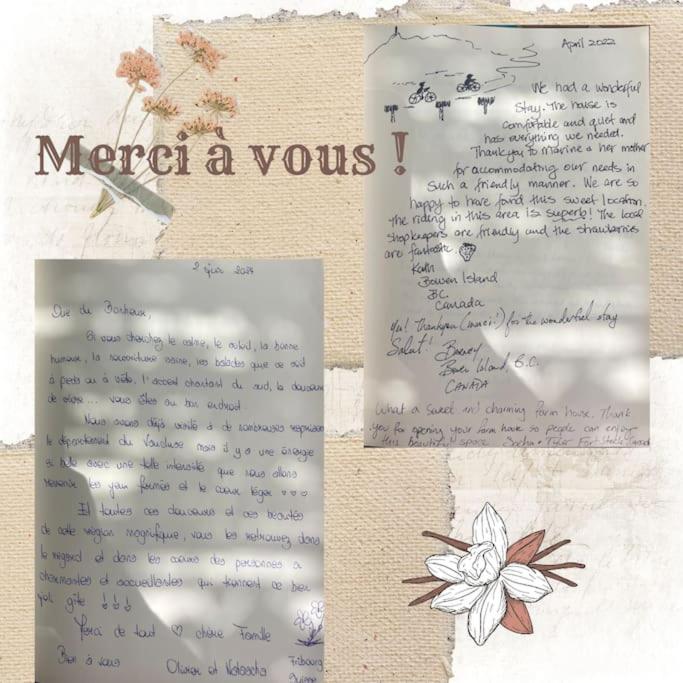 Merci à vous !
April 2022
We had a wonderful
stay. The house is
comfortable and quiet and
has everything we needed.
Thank you to Marine & her mother
for accommodating our needs in
such a friendly manner. We are so
happy to have found this sweet location.
The riding in this area is superb! The local
shopkeepers are friendly and the strawberries
are fantastic.
Bowen Island
BC.
Canada
Yes! Thankyou (merci!) for the wonderful stay
Salut! Barney
Bowen Island, B.C.
CANADA
What a sweet and charming farm house. Thank
you for opening your farm house so people can enjoy
this beautiful space. Sasha + Tyler Fort
2 juin
Que du Bonheur,
Si vous cherchez le calme, le soleil, la bonne
humeur, la nourriture saine, les balades que ce soit
à pieds ou à vélo, l'accent chantant du sud, la douceur
de vivre... vous êtes au bon endroit.
Nous avons déjà visité à de nombreuses reprises
le département du Vaucluse mais il y a une énergie
si belle avec une telle intensité que nous allons
revenir les yeux fermés et le coeur léger ♡♡♡
Et toutes ces douceurs et ces beautés
de cette région magnifique, vous les retrouvez dans
le regard et dans les coeurs des personnes si
charmantes et accueillantes qui tiennent ce bien
joli gîte !!!
Merci de tout ♡ chère Famille
Bien à vous Olivier et Natascha
Fribourg
Suisse